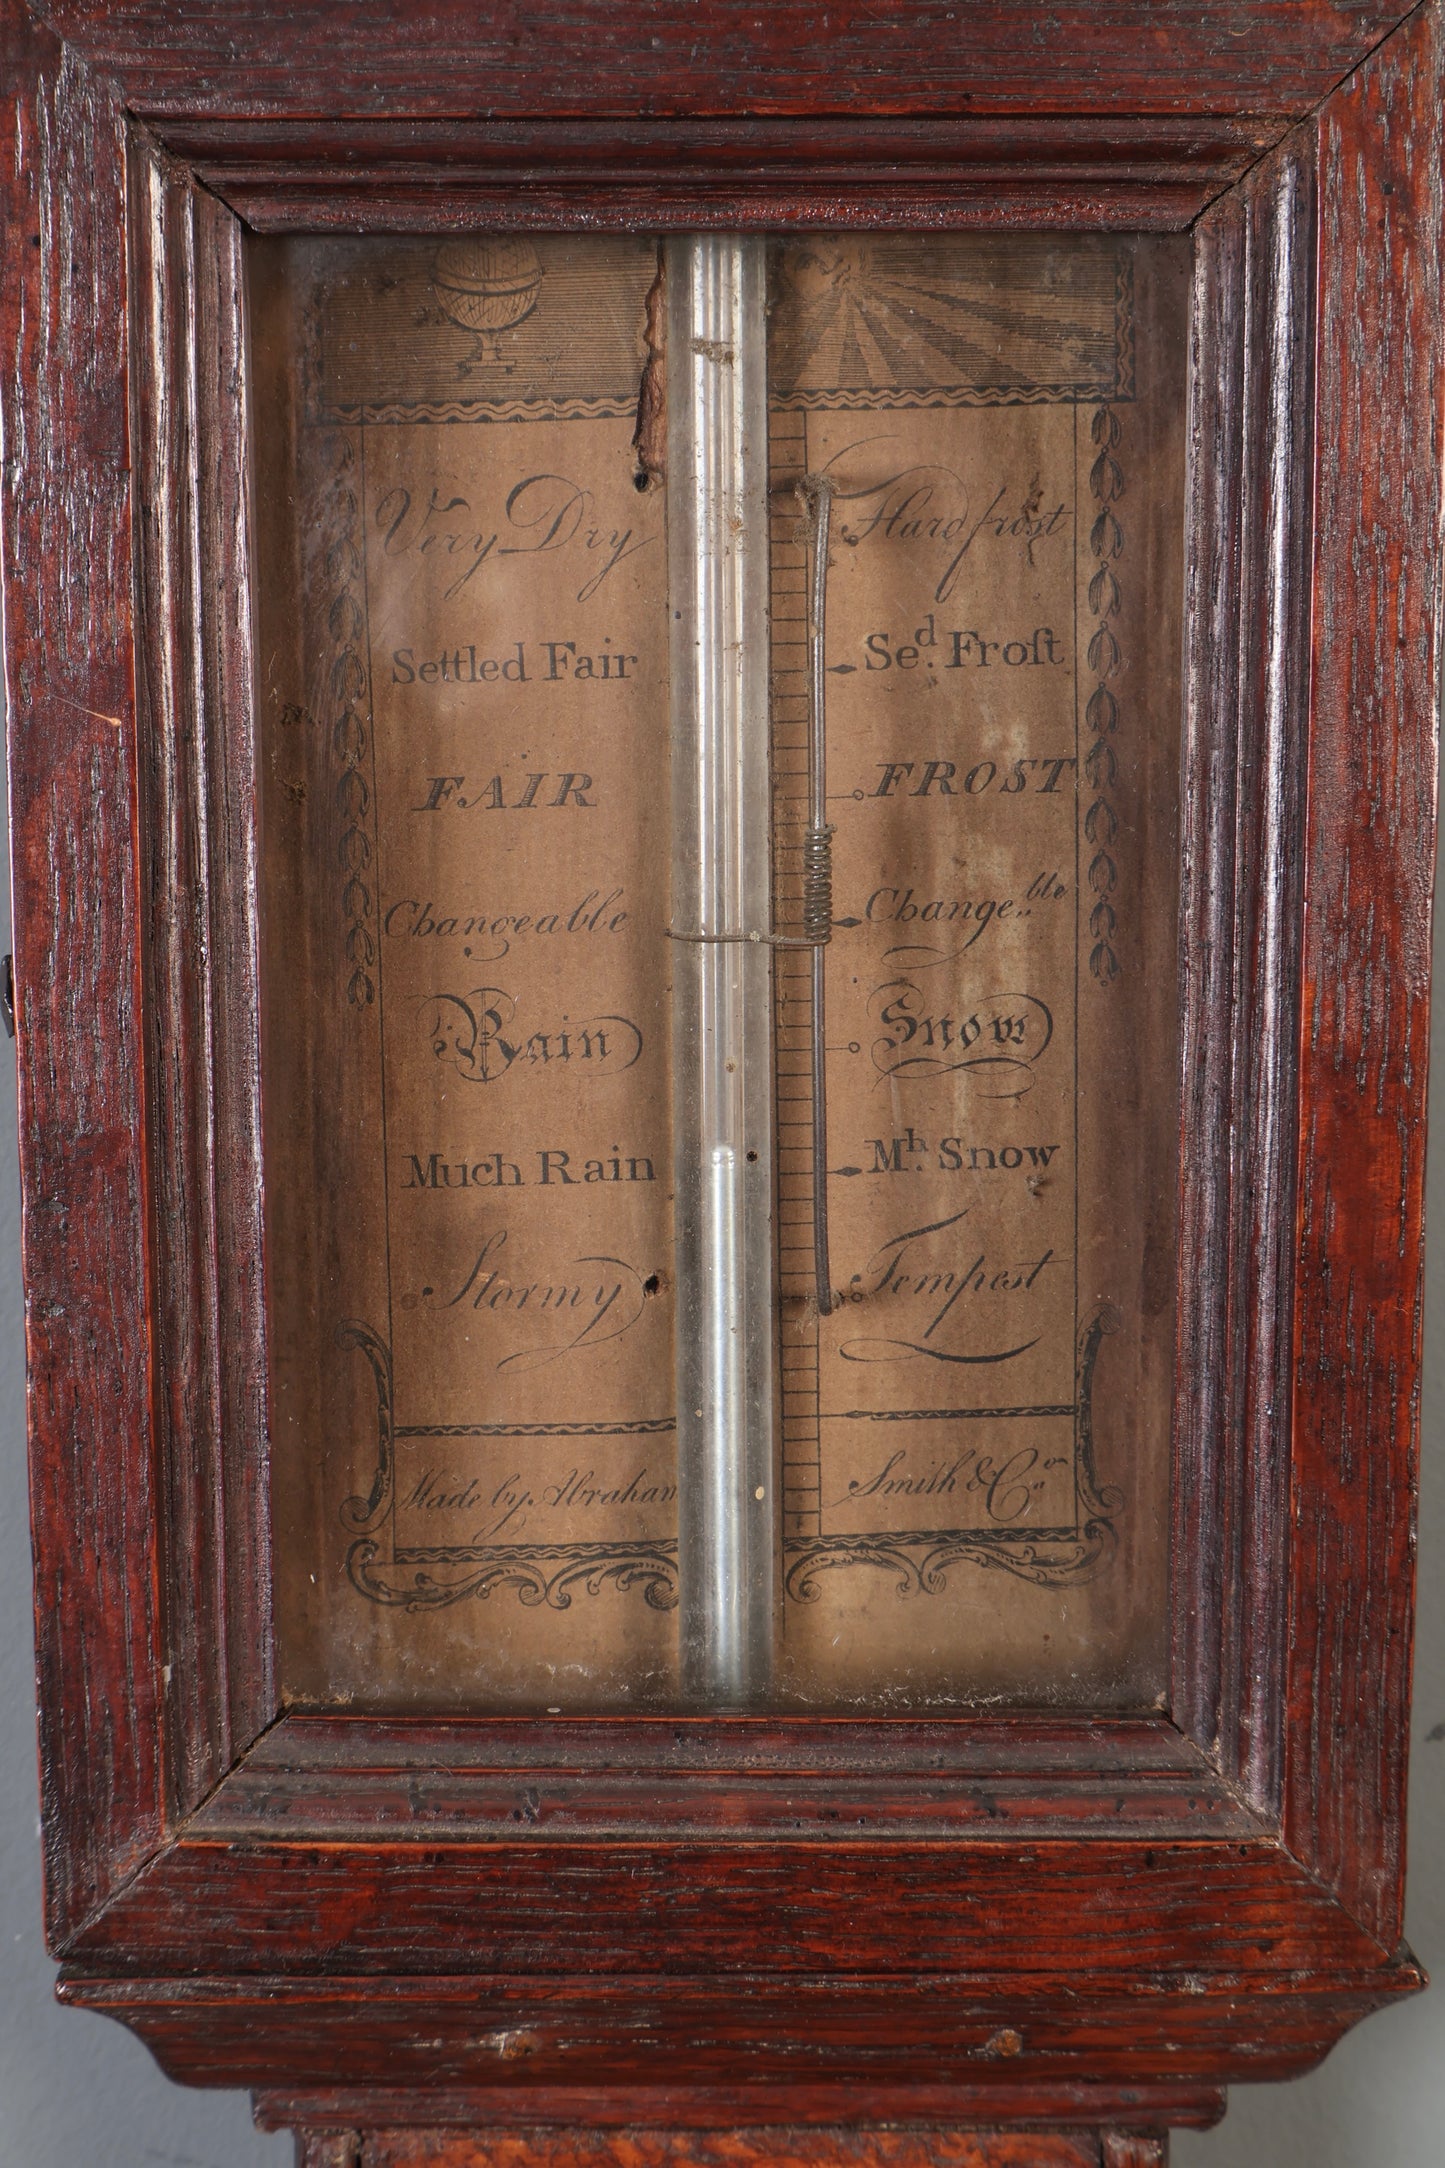 Very Dry
Hard frost
Settled Fair
Se.ᵈ Froſt
FAIR
FROST
Changeable
Change„ᵇˡᵉ
Rain
Snow
Much Rain
M.ʰ Snow
Stormy
Tempest
Made by Abraham
Smith & C„ᵒ